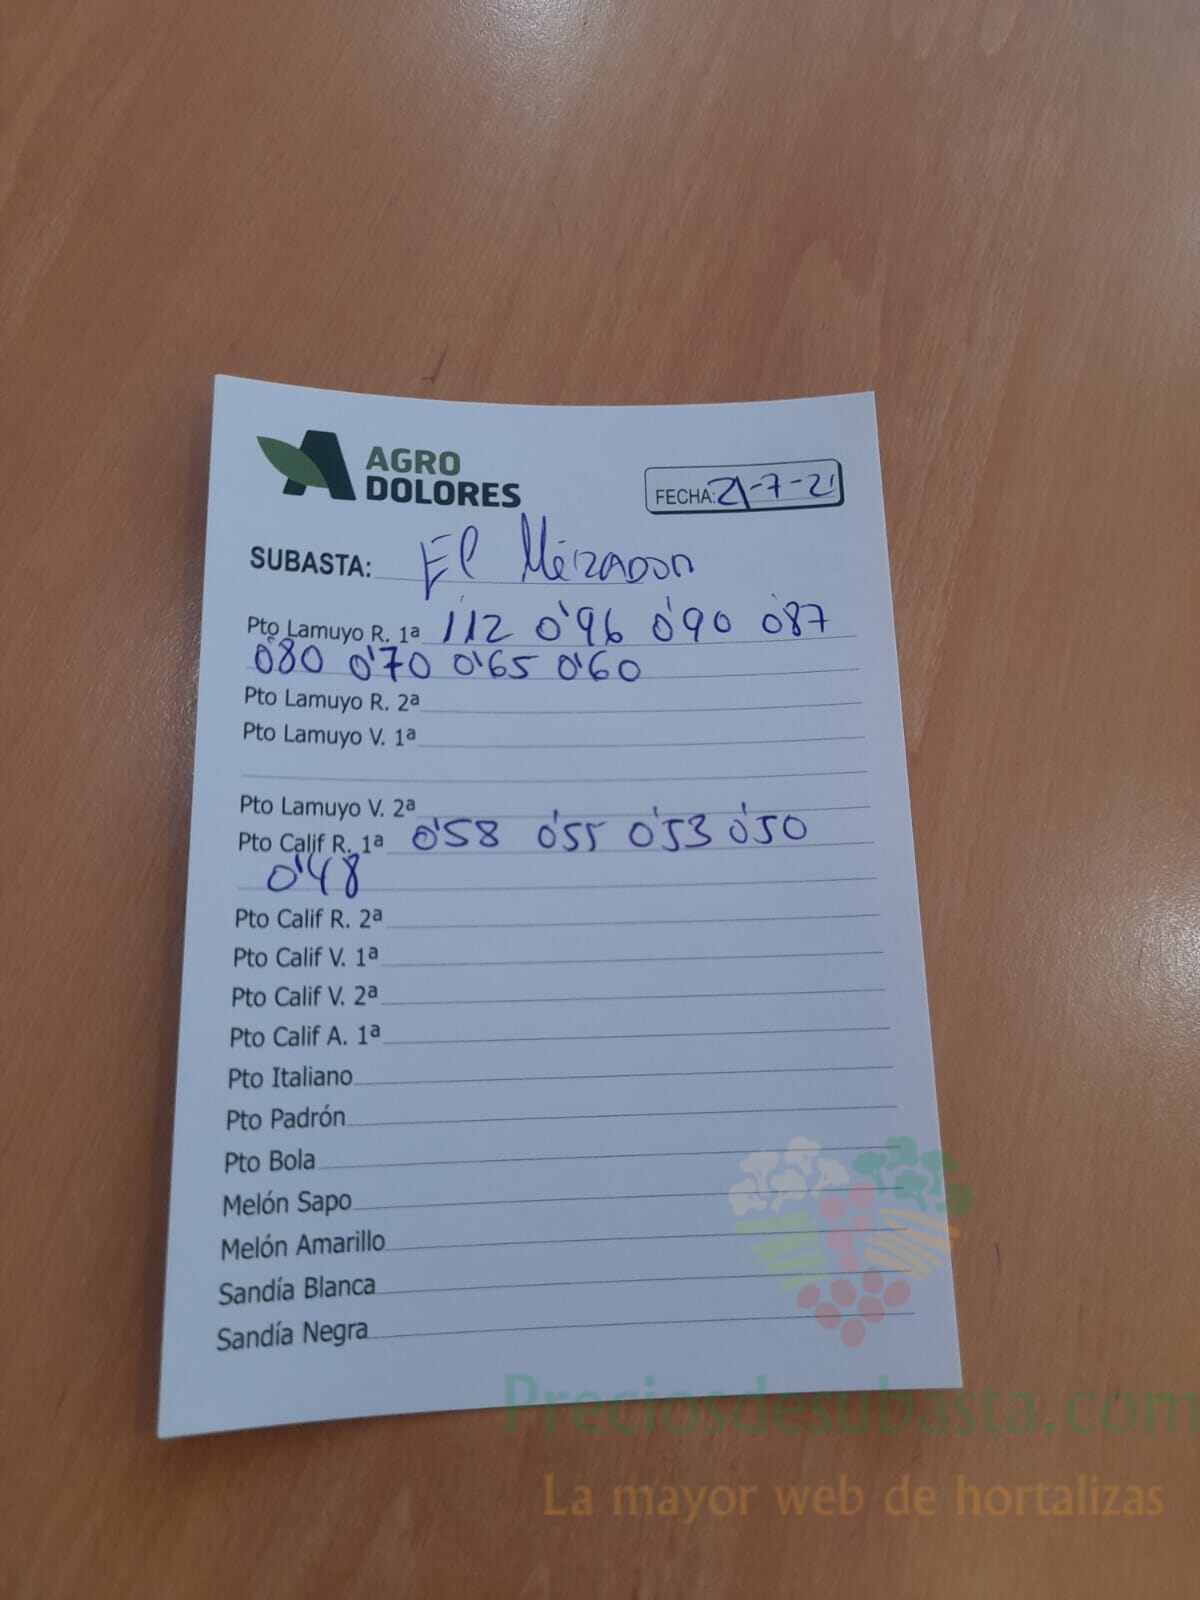 AGRO
DOLORES
FECHA: 21-7-21
SUBASTA: El Mirador
Pto Lamuyo R. 1ª 1'12 0'96 0'90 0'87
0'80 0'70 0'65 0'60
Pto Lamuyo R. 2ª
Pto Lamuyo V. 1ª
Pto Lamuyo V. 2ª
Pto Calif R. 1ª 0'58 0'55 0'53 0'50
0'48
Pto Calif R. 2ª
Pto Calif V. 1ª
Pto Calif V. 2ª
Pto Calif A. 1ª
Pto Italiano
Pto Padrón
Pto Bola
Melón Sapo
Melón Amarillo
Sandía Blanca
Sandía Negra
Preciosdesubasta.com
La mayor web de hortalizas